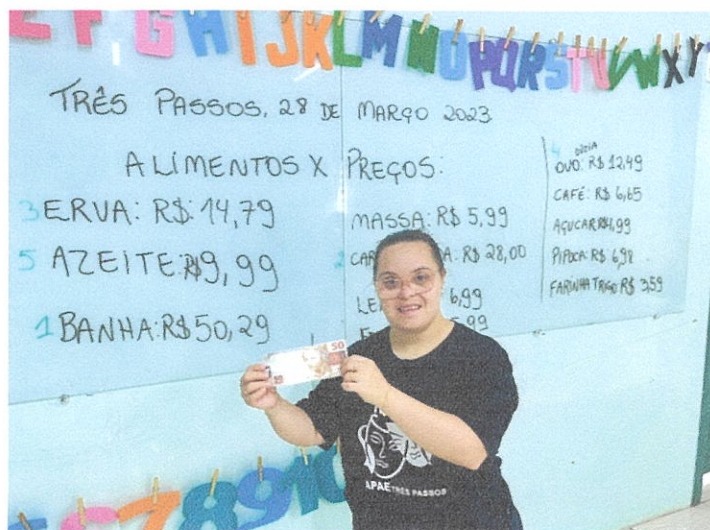 E F G H I J K L M N O P Q R S T U V W X Y
TRÊS PASSOS, 28 DE MARÇO 2023
ALIMENTOS X PREÇOS:
3 ERVA: R$: 14,79
5 AZEITE: R$9,99
1 BANHA: R$50,29
MASSA: R$ 5,99
2 CAR A: R$ 28,00
LE 6,99
5,99
4 DÚZIA
OVO: R$ 12,49
CAFÉ: R$ 6,65
AÇUCAR: R$4,99
PIPOCA: R$ 6,98
FARINHA TRIGO R$ 3,59
50
APAE TRÊS PASSOS
6 7 8 9 10